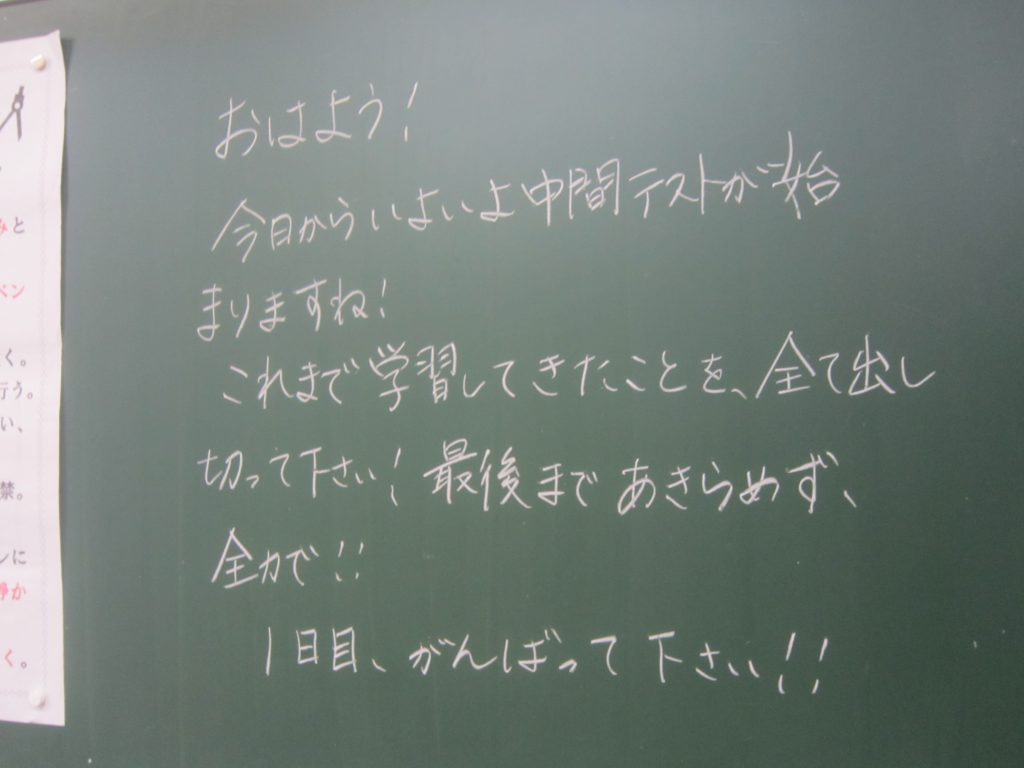 おはよう!
今日からいよいよ中間テストが始
まりますね!
これまで学習してきたことを、全て出し
切って下さい!最後まであきらめず、
全力で!!
1日目、がんばって下さい!!
みと
ペン
く。
行う。
い、
禁。
ンに
静か
く。